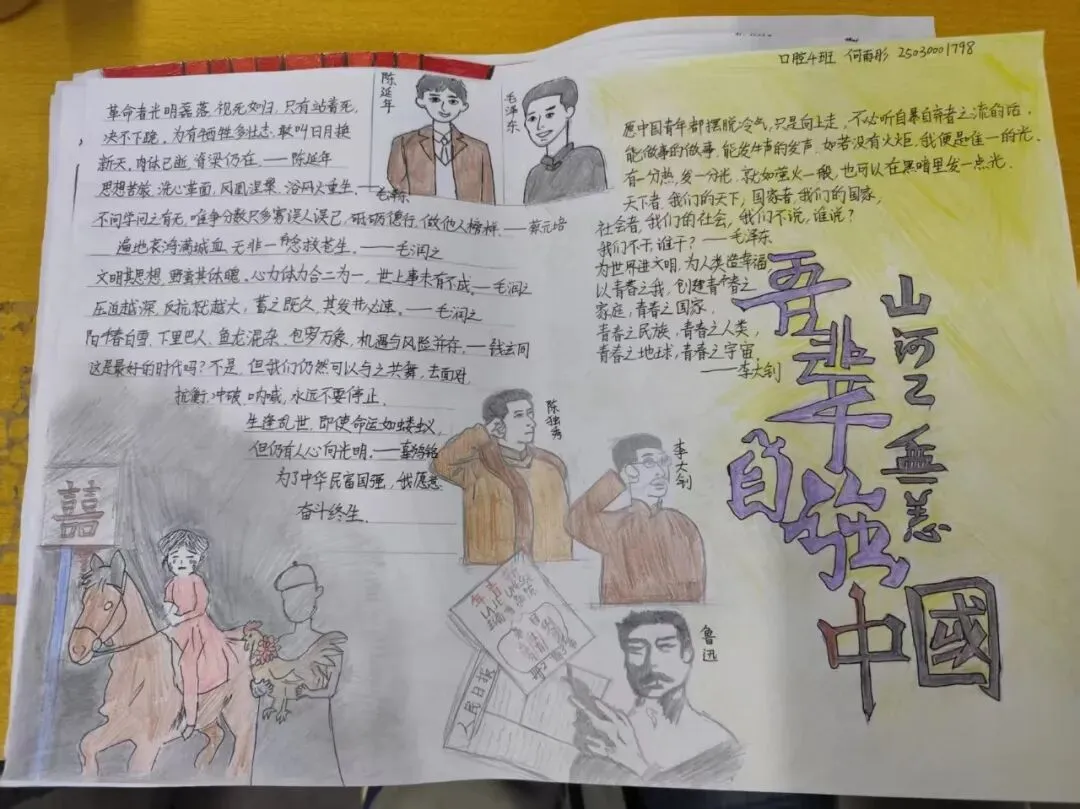 口腔4班 何雨彤 25030001798
革命者光明磊落、视死如归,只有站着死,
决不下跪。为有牺牲多壮志,敢叫日月换
新天。肉体已逝,脊梁仍在。——陈延年
思想若旅,洗心革面,凤凰涅槃,浴火重生。——毛泽东
不问学问之有无,唯争分数只多寡误人误己,砥砺德行,做他人榜样。——蔡元培
遍地哀鸿满城血,无非一念救苍生。——毛润之
文明其思想,野蛮其体魄。心力体力合二为一,世上事未有不成。——毛润之
压迫越深,反抗就越大,蓄之既久,其发必速。——毛润之
阳春白雪、下里巴人、鱼龙混杂、包罗万象,机遇与风险并存。——钱玄同
这是最好的时代吗?不是,但我们仍然可以与之共舞,去面对,
抗衡、冲破、呐喊,永远不要停止。
生逢乱世,即使命运如蝼蚁,
但仍有人心向光明。——辜鸿铭
为了中华民富国强,我愿意
奋斗终生。
陈延年
毛泽东
愿中国青年都摆脱冷气,只是向上走,不必听自暴自弃者之流的话,
能做事的做事,能发声的发声,如若没有火炬,我便是唯一的光。
有一分热,发一分光,就如萤火一般,也可以在黑暗里发一点光。
天下者,我们的天下,国家者,我们的国家,
社会者,我们的社会,我们不说,谁说?
我们不干,谁干?——毛泽东
为世界进文明,为人类造幸福
以青春之我,创建青春之
家庭,青春之国家,
青春之民族,青春之人类,
青春之地球,青春之宇宙。
——李大钊
吾辈自强
山河已無恙
中國
陈独秀
李大钊
鲁迅
囍
人民日报